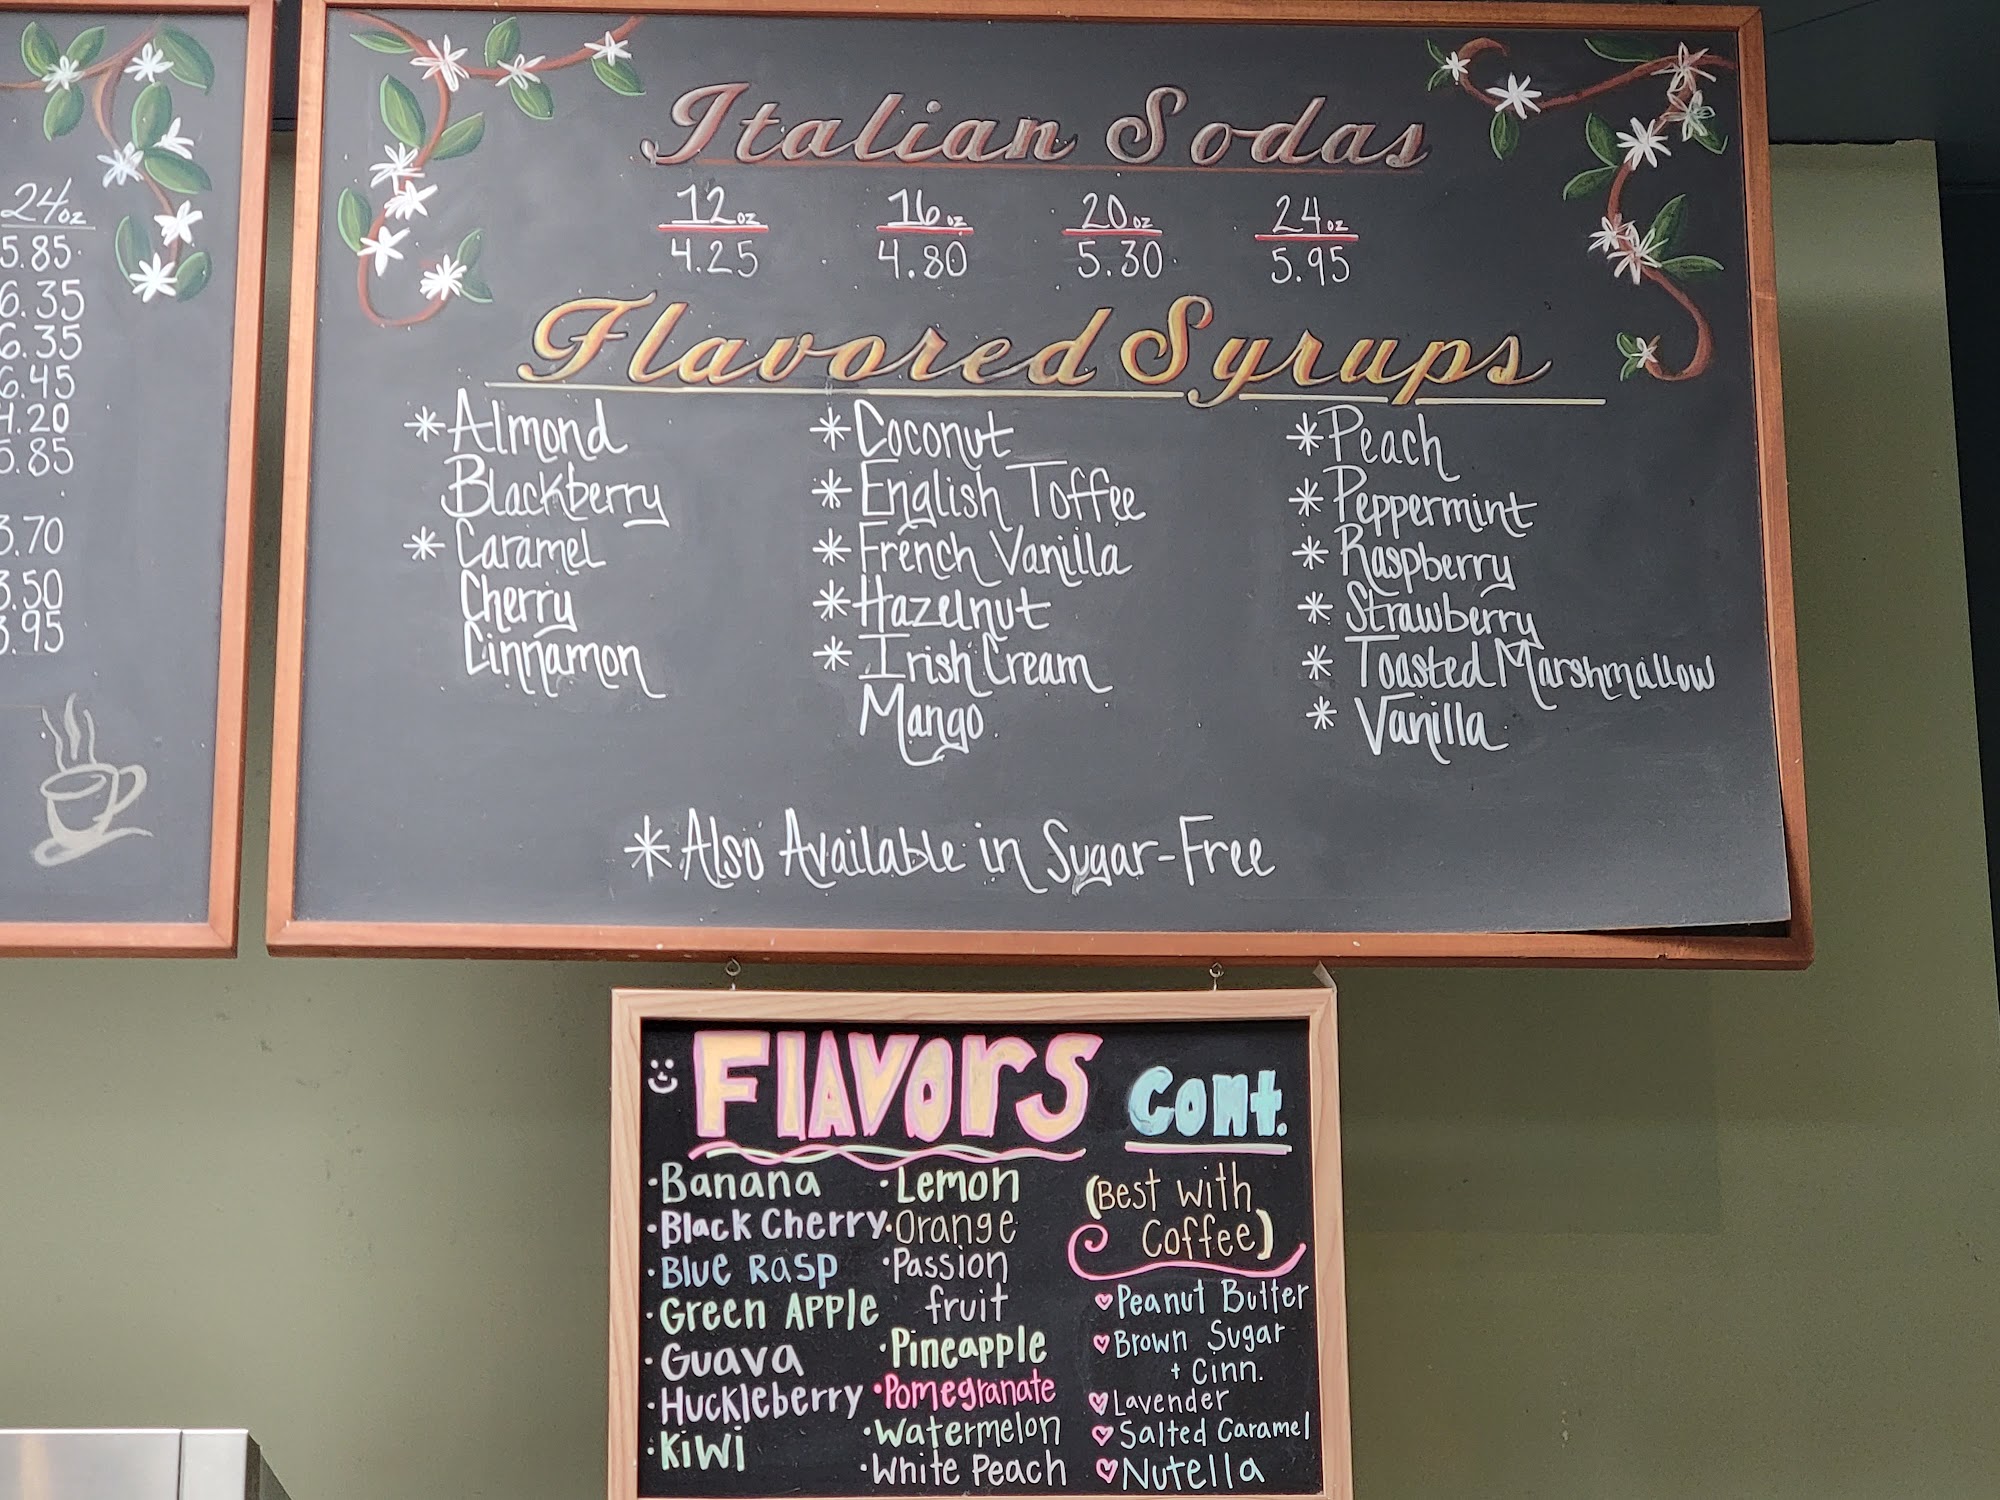 24oz
5.85
6.35
6.35
6.45
4.20
5.85
3.70
3.50
3.95
Italian Sodas
12oz 16oz 20oz 24oz
4.25 4.80 5.30 5.95
Flavored Syrups
*Almond
Blackberry
*Caramel
Cherry
Cinnamon
*Coconut
*English Toffee
*French Vanilla
*Hazelnut
*Irish Cream
Mango
*Peach
*Peppermint
*Raspberry
*Strawberry
*Toasted Marshmallow
*Vanilla
*Also Available in Sugar-Free
Flavors Cont.
·Banana
·Black Cherry
·Blue Rasp
·Green Apple
·Guava
·Huckleberry
·Kiwi
·Lemon
·Orange
·Passion
fruit
·Pineapple
·Pomegranate
·Watermelon
·White Peach
(Best with
Coffee)
♥Peanut Butter
♥Brown Sugar
+ Cinn.
♥Lavender
♥Salted Caramel
♥Nutella